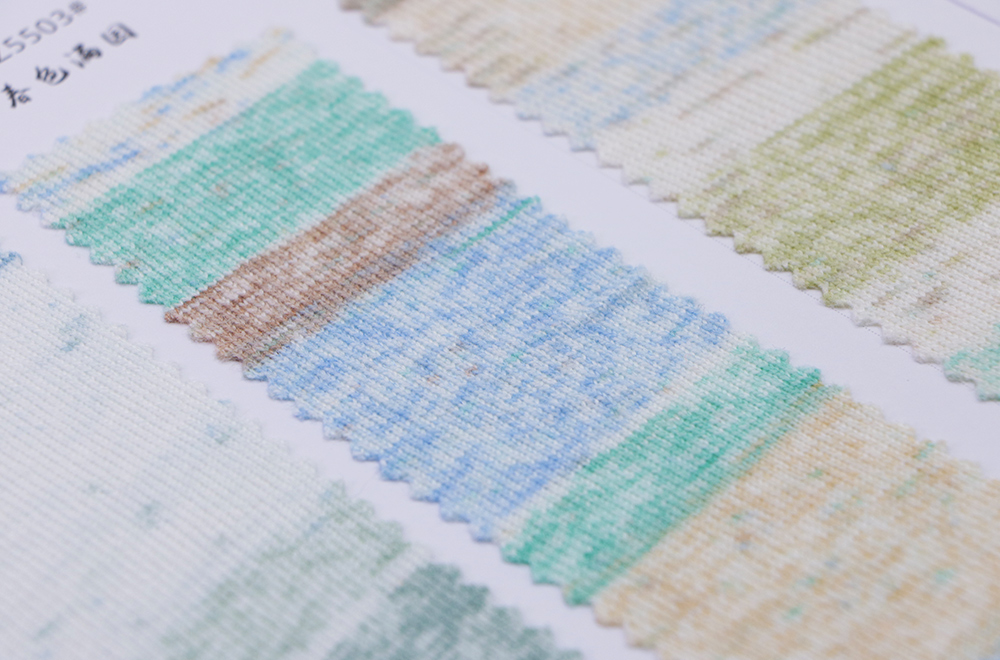 25503#
春色满园